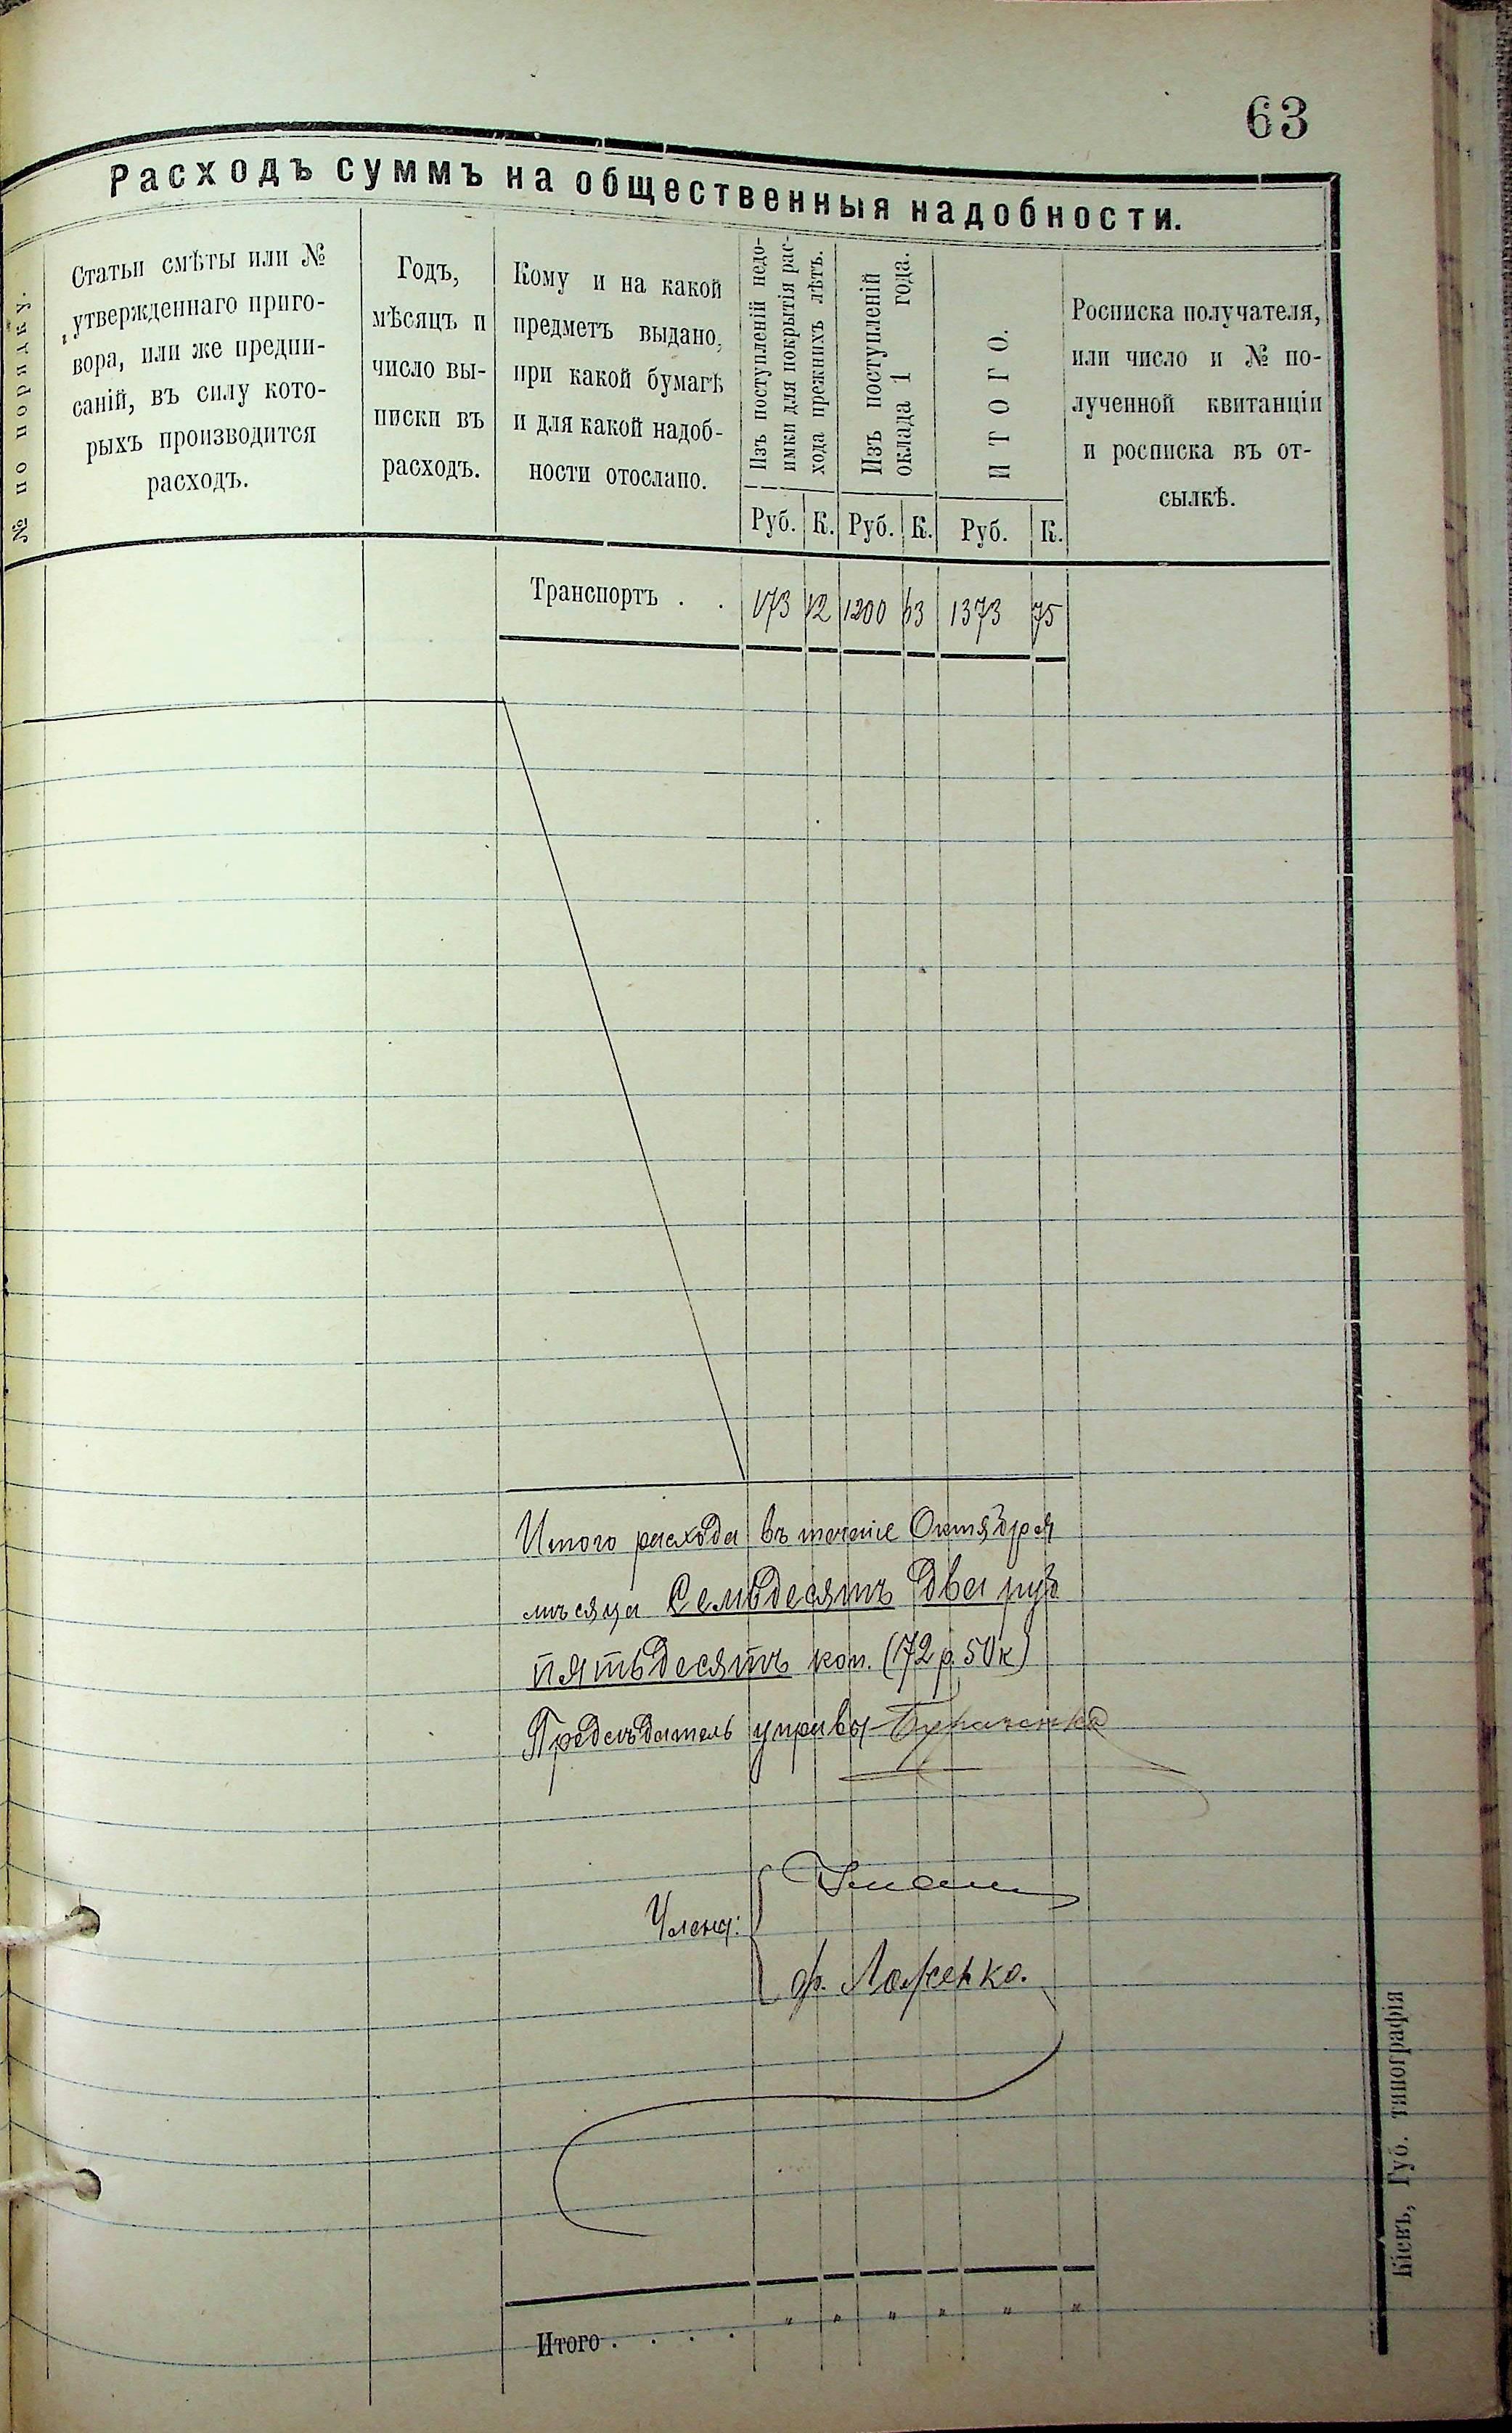 63
Расходъ суммъ на общественныя надобности.
№ по порядку.
Статьи смѣты или №
утвержденнаго приго-
вора, или же предпи-
саній, въ силу кото-
рыхъ производится
расходъ.
Годъ,
мѣсяцъ и
число вы-
писки въ
расходъ.
Кому и на какой
предметъ выдано,
при какой бумагѣ
и для какой надоб-
ности отослано.
Изъ поступленій недо-
имки для покрытія рас-
хода прежнихъ лѣтъ.
Изъ поступленій
оклада 1 года.
ИТОГО.
Росписка получателя,
или число и № по-
лученной квитанціи
и росписка въ от-
сылкѣ.
Руб. К. Руб. К. Руб. К.
Транспортъ . . 173 12 1200 63 1373 75
Итого расхода въ теченіе Октября
мѣсяца Семьдесятъ два руб
пятьдесятъ коп. (72 р. 50 к)
Предсѣдатель управы
Члены:
Ф. Ложенко.
Итого . . . . " " " " " "
Кіевъ, Губ. типографія